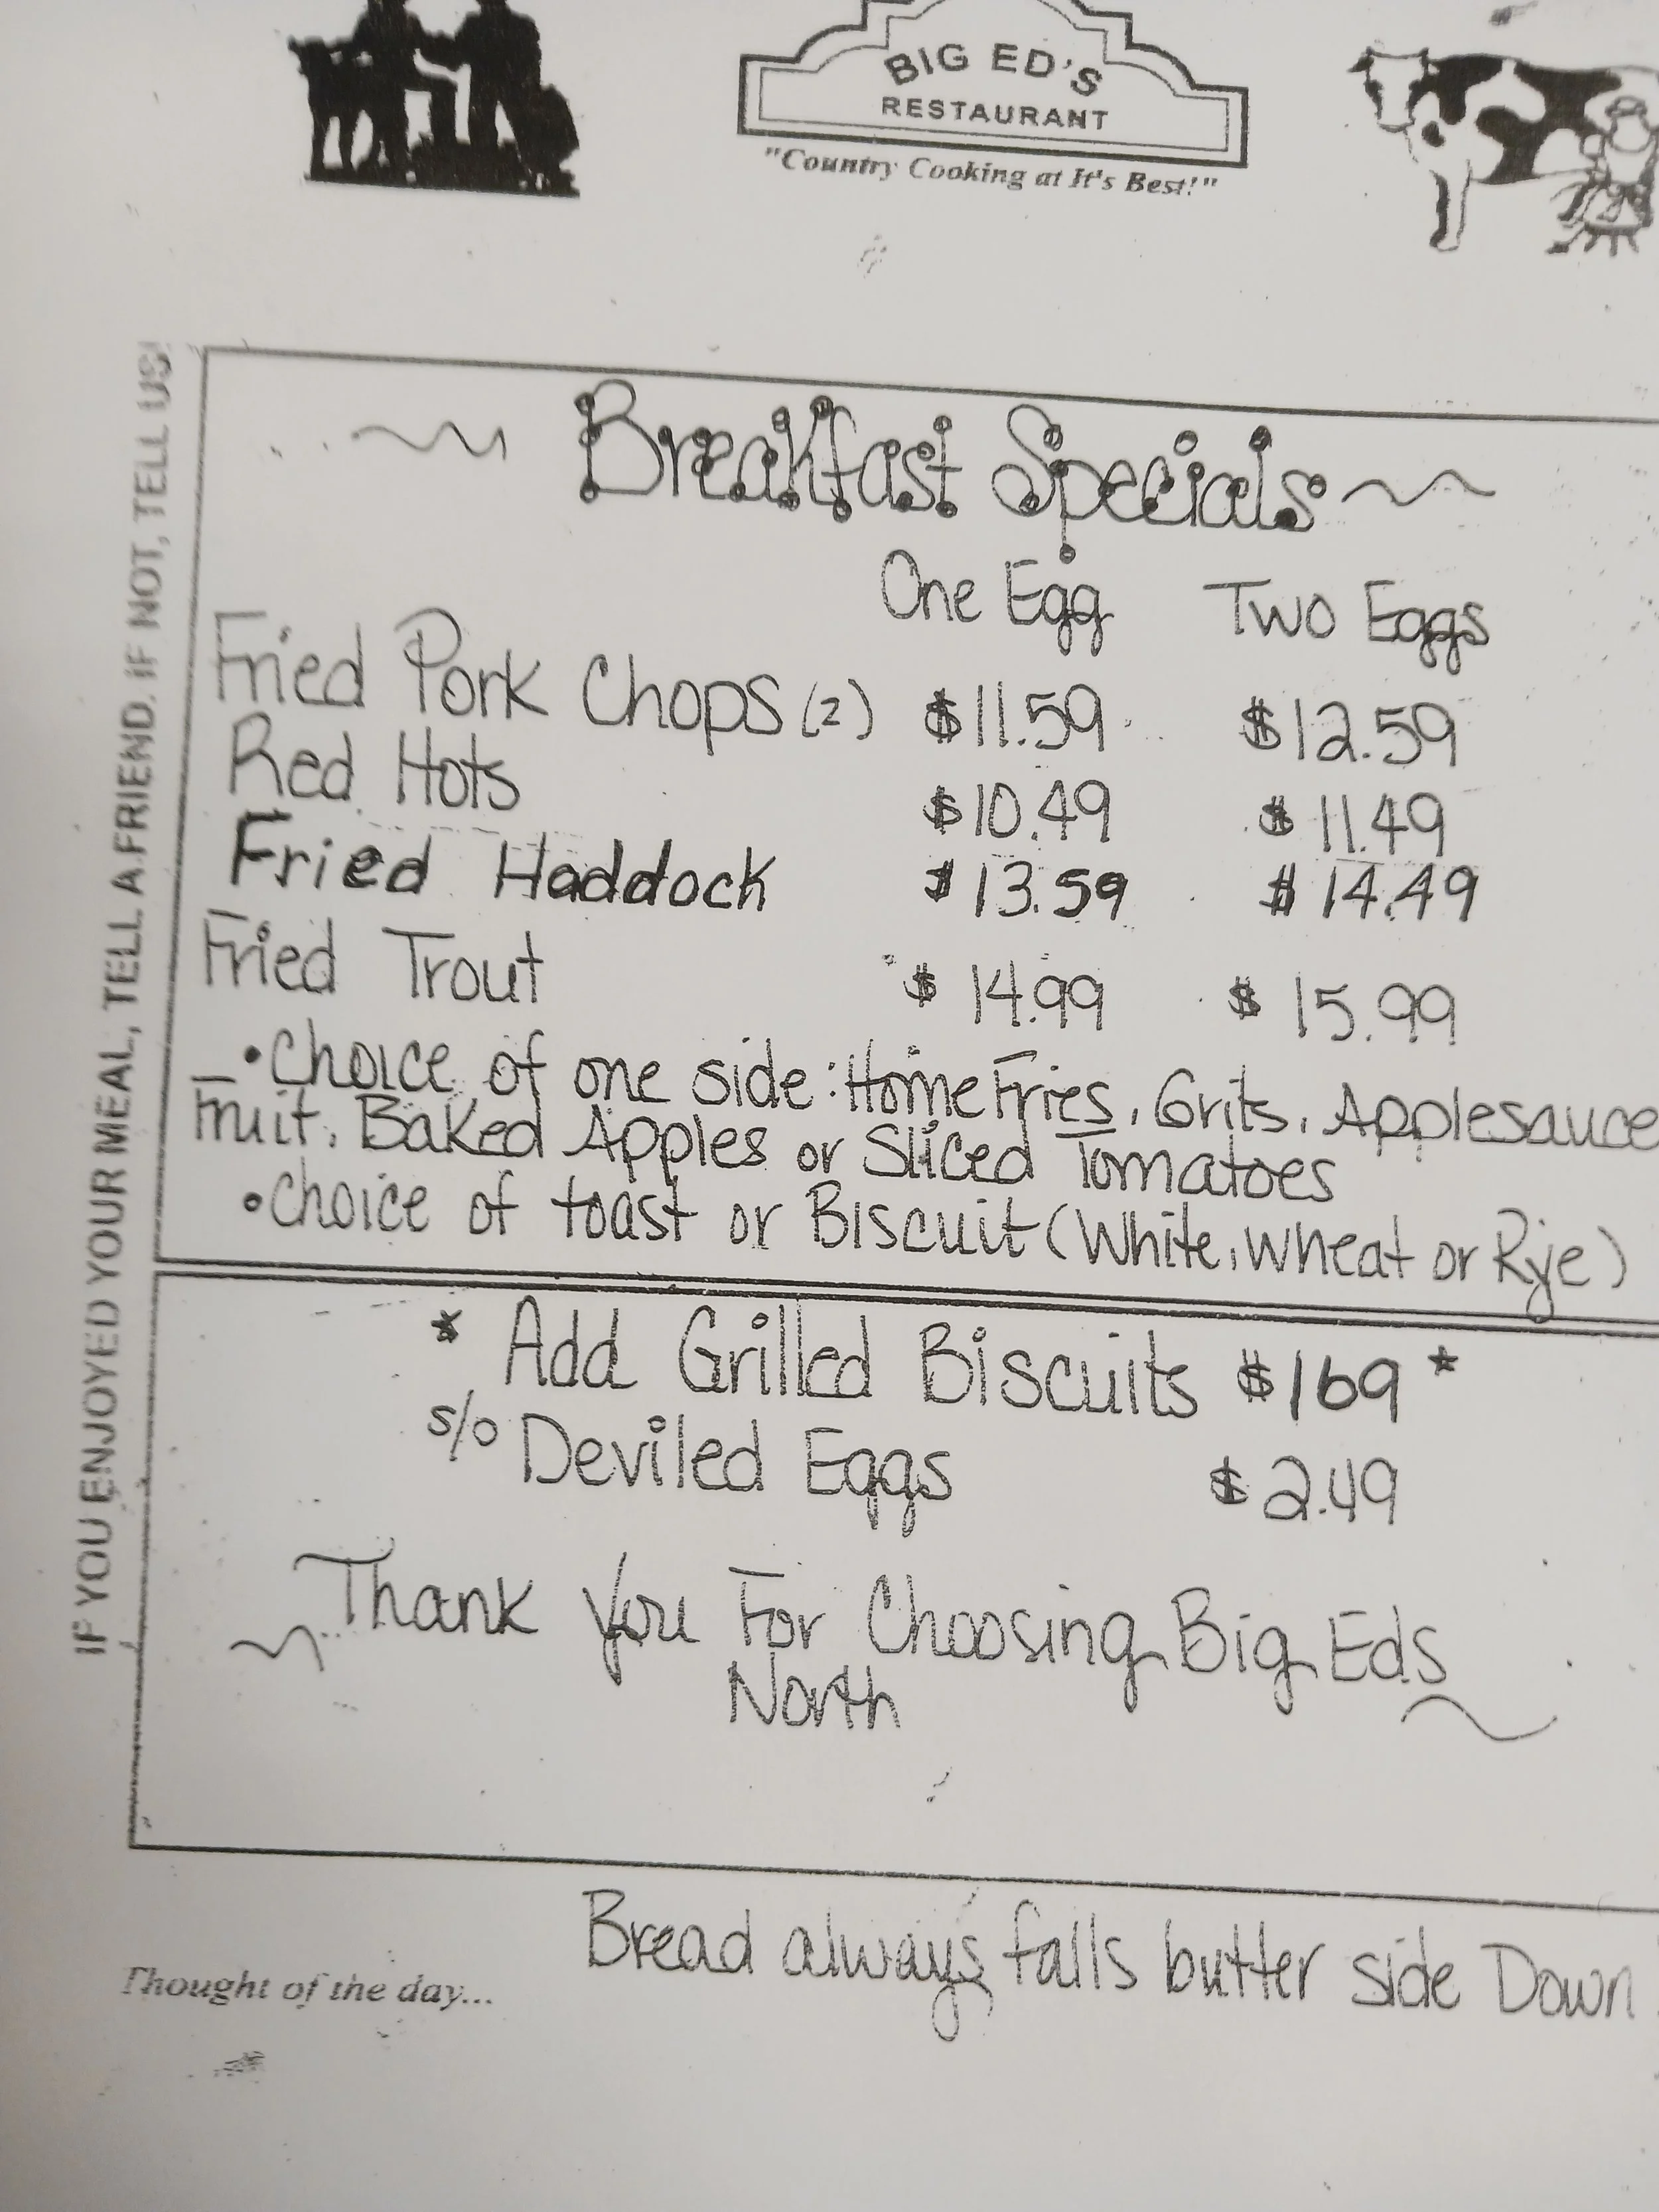 BIG ED'S
RESTAURANT
"Country Cooking at It's Best!"
IF YOU ENJOYED YOUR MEAL, TELL A FRIEND. IF NOT, TELL US!
Breakfast Specials
One Egg Two Eggs
Fried Pork Chops (2) $11.59 $12.59
Red Hots $10.49 $11.49
Fried Haddock $13.59 $14.49
Fried Trout $14.99 $15.99
• Choice of one side: Home Fries, Grits, Applesauce
Fruit, Baked Apples or Sliced Tomatoes
• Choice of toast or Biscuit (White, Wheat or Rye)
* Add Grilled Biscuits $169 *
s/o Deviled Eggs $2.49
Thank You For Choosing Big Eds
North
Thought of the day... Bread always falls butter side Down